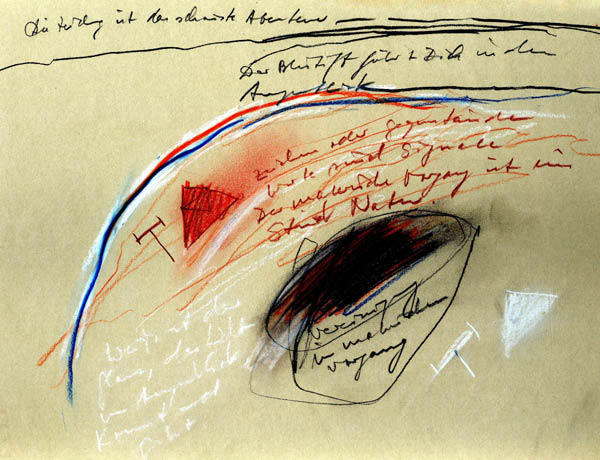 Die Zeichnung ist das schönste Abenteuer
Der Bleistift führt Dich in den
Augenblick
Zeichen oder Gegenstände
Worte sind Signale
Der malerische Vorgang ist ein
Stück Natur.
Weiß ist der
Glanz, das Licht
im Augenblick
Kommt und
geht
im malerischen
Vorgang